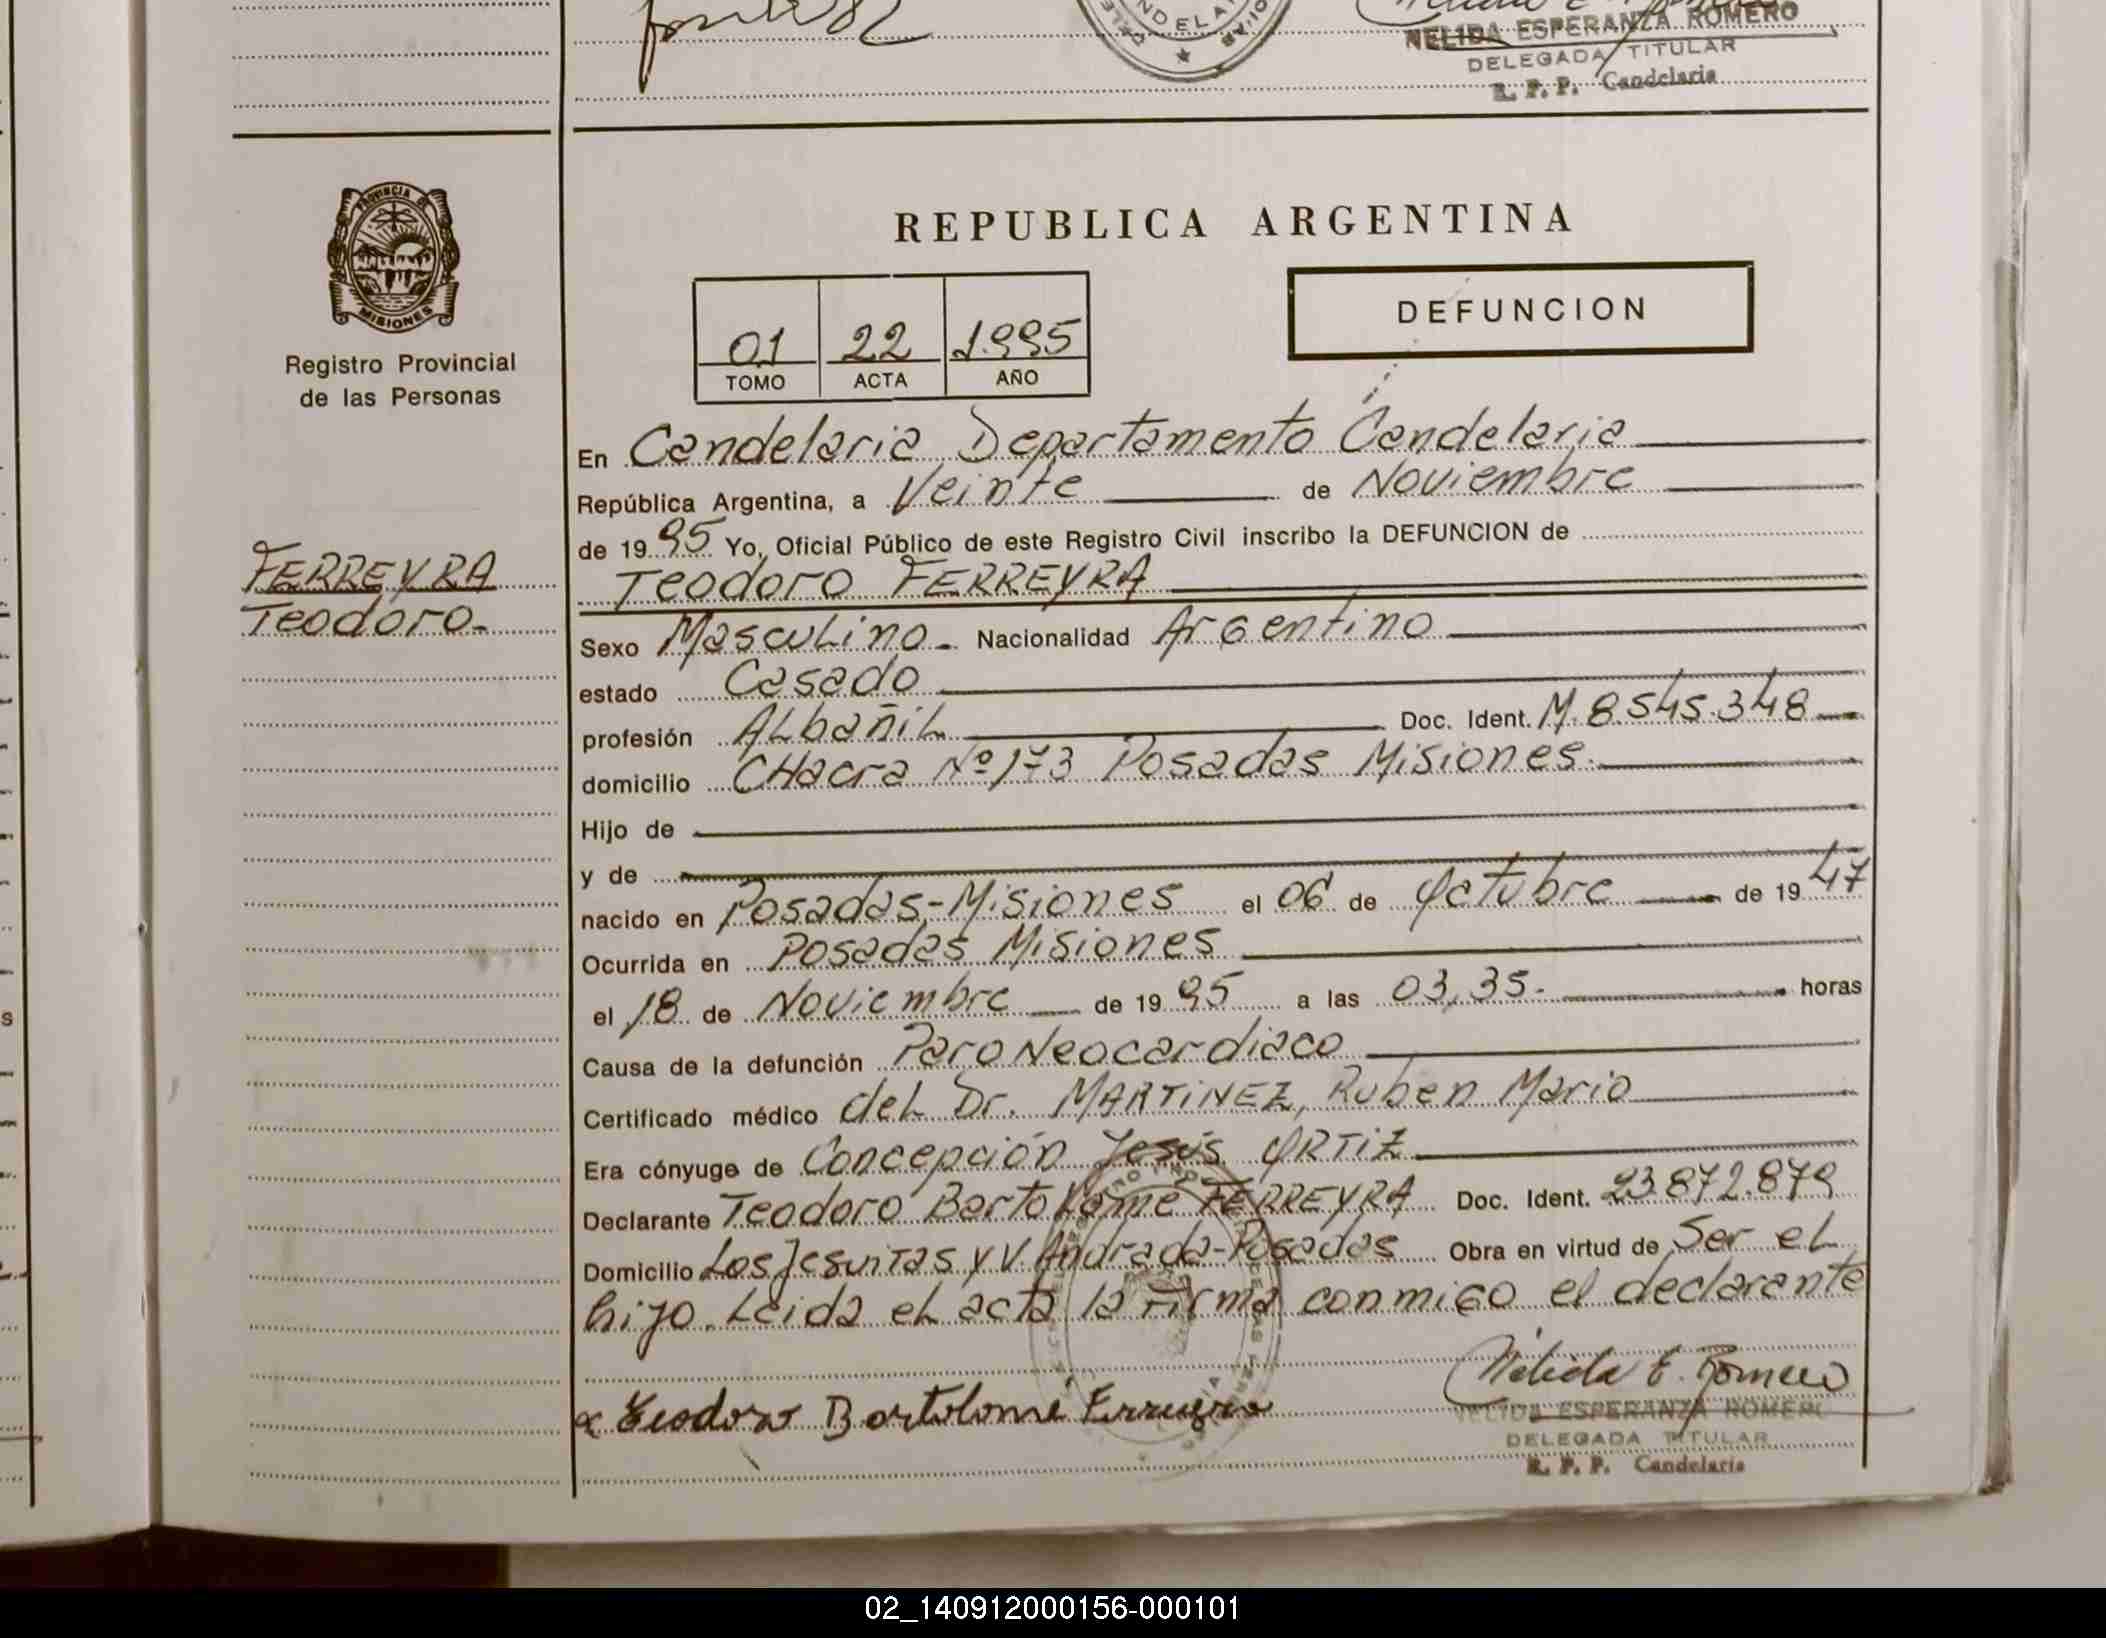 NELIDA ESPERANZA ROMERO
DELEGADA TITULAR
R. P. P. Candelaria
PROVINCIA DE
MISIONES
Registro Provincial
de las Personas
FERREYRA
Teodoro.-
REPUBLICA ARGENTINA
01 22 1995
TOMO ACTA AÑO
DEFUNCION
En Candelaria Departamento Candelaria
República Argentina, a Veinte de Noviembre
de 19 95 Yo, Oficial Público de este Registro Civil inscribo la DEFUNCION de
Teodoro FERREYRA
Sexo Masculino.- Nacionalidad Argentino
estado Casado
profesión Albañil Doc. Ident. M. 8.545.348
domicilio CHacra Nº 173 Posadas Misiones.
Hijo de
y de
nacido en Posadas-Misiones el 06 de Octubre de 19 47
Ocurrida en Posadas Misiones
el 18 de Noviembre de 19 95 a las 03,35.- horas
Causa de la defunción Paro Neocardiaco
Certificado médico del Dr. MARTINEZ, Ruben Mario
Era cónyuge de Concepción Jesús ORTIZ
Declarante Teodoro Bartolome FERREYRA Doc. Ident. 23.872.879
Domicilio Los Jesuitas y V. Andrada-Posadas Obra en virtud de Ser el
hijo. Leida el acta la firma conmigo el declarante
Teodoro Bartolomé Ferreyra
Nélida E. Romero
NELIDA ESPERANZA ROMERO
DELEGADA TITULAR
R. P. P. Candelaria
02_140912000156-000101